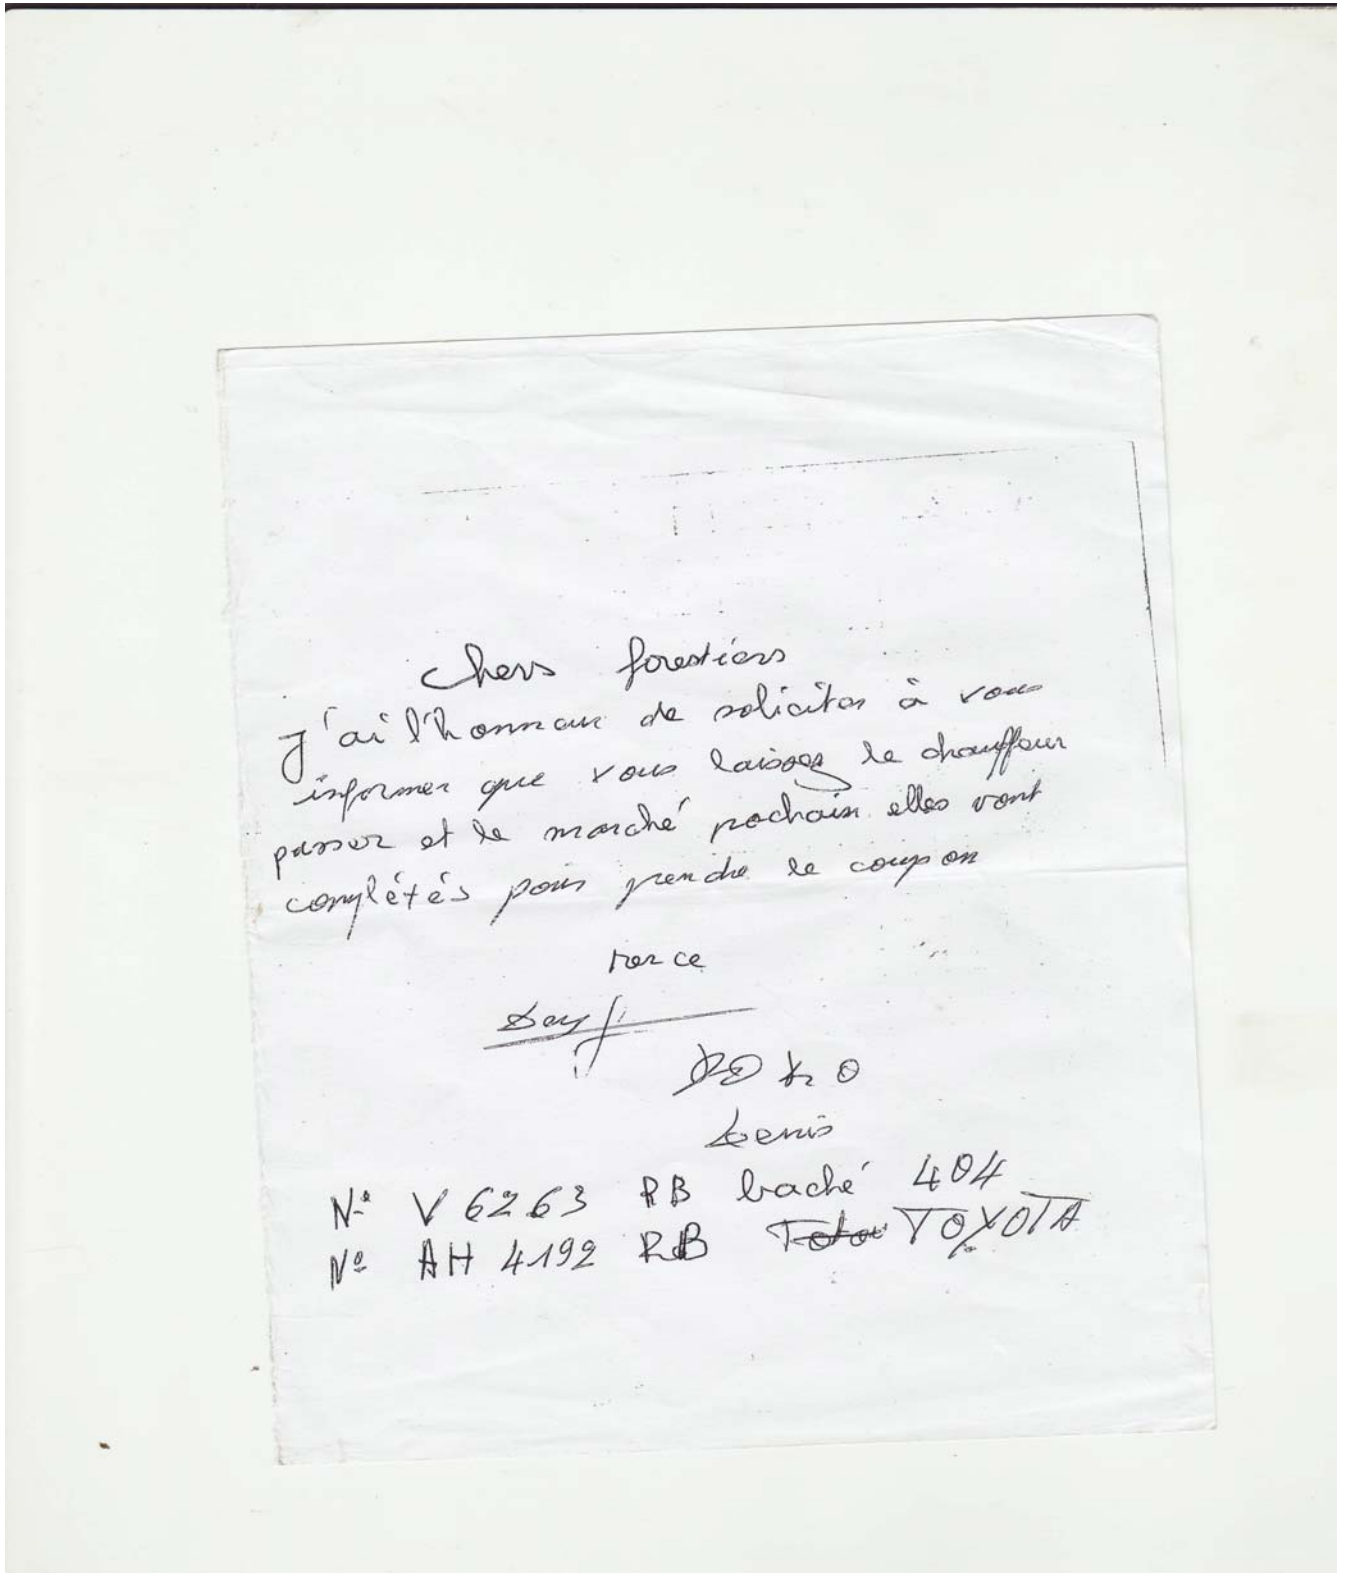 Chers forestiers
J'ai l'honneur de soliciter à vous
informer que vous laissez le chauffeur
passer et le marché prochain elles vont
complétés pour prendre le coupon
Merce
DOKO
Denis
N° V 6263 RB baché 404
N° AH 4192 RB TOYOTA